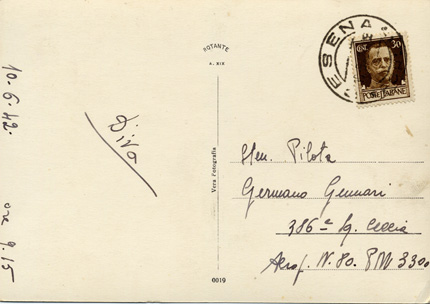 10.6.42. ore 9.15
Diva
ROTANTE
A. XIX
Vera Fotografia
0019
CESENA
CENT. 30
POSTE ITALIANE
Sten. Pilota
Germano Gennari
386ª Sq. Caccia
Aerof. N. 80. PM 3300